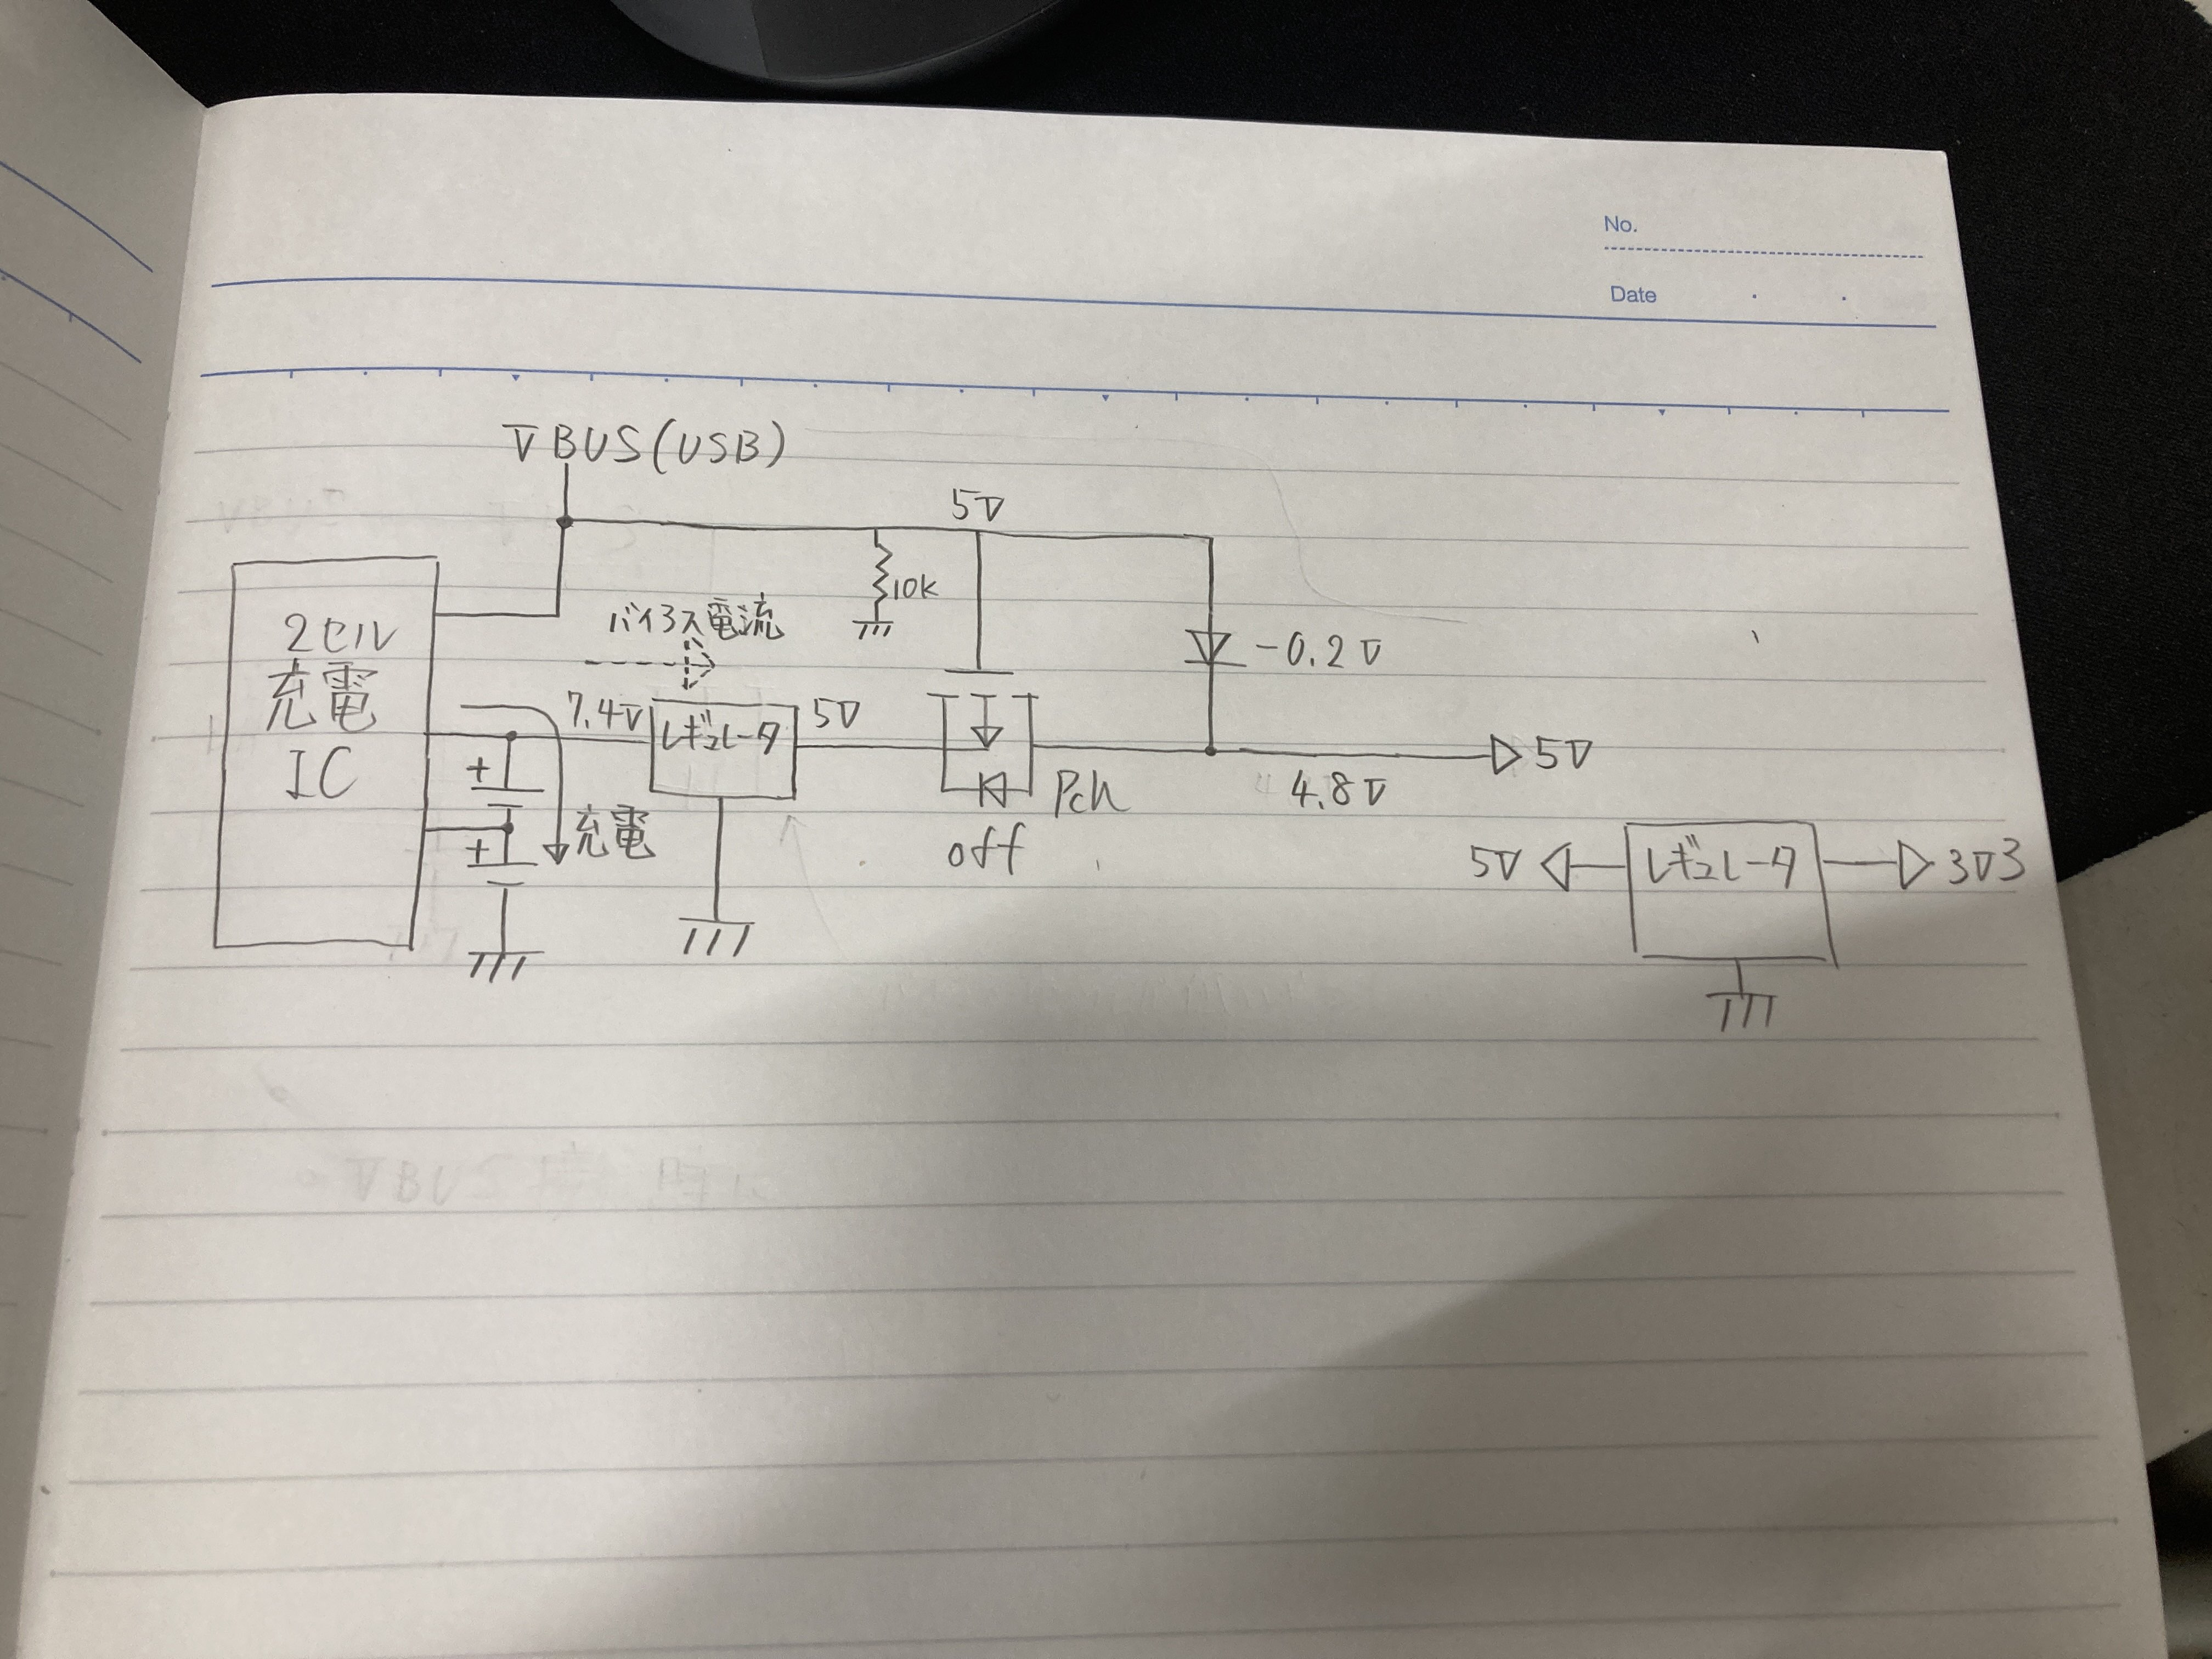 No.
Date
VBUS(USB)
5V
10k
バイアス電流
-0.2V
2セル
充電
IC
7.4V
レギュレータ
5V
+
+
充電
Pch
off
4.8V
5V
5V
レギュレータ
3V3